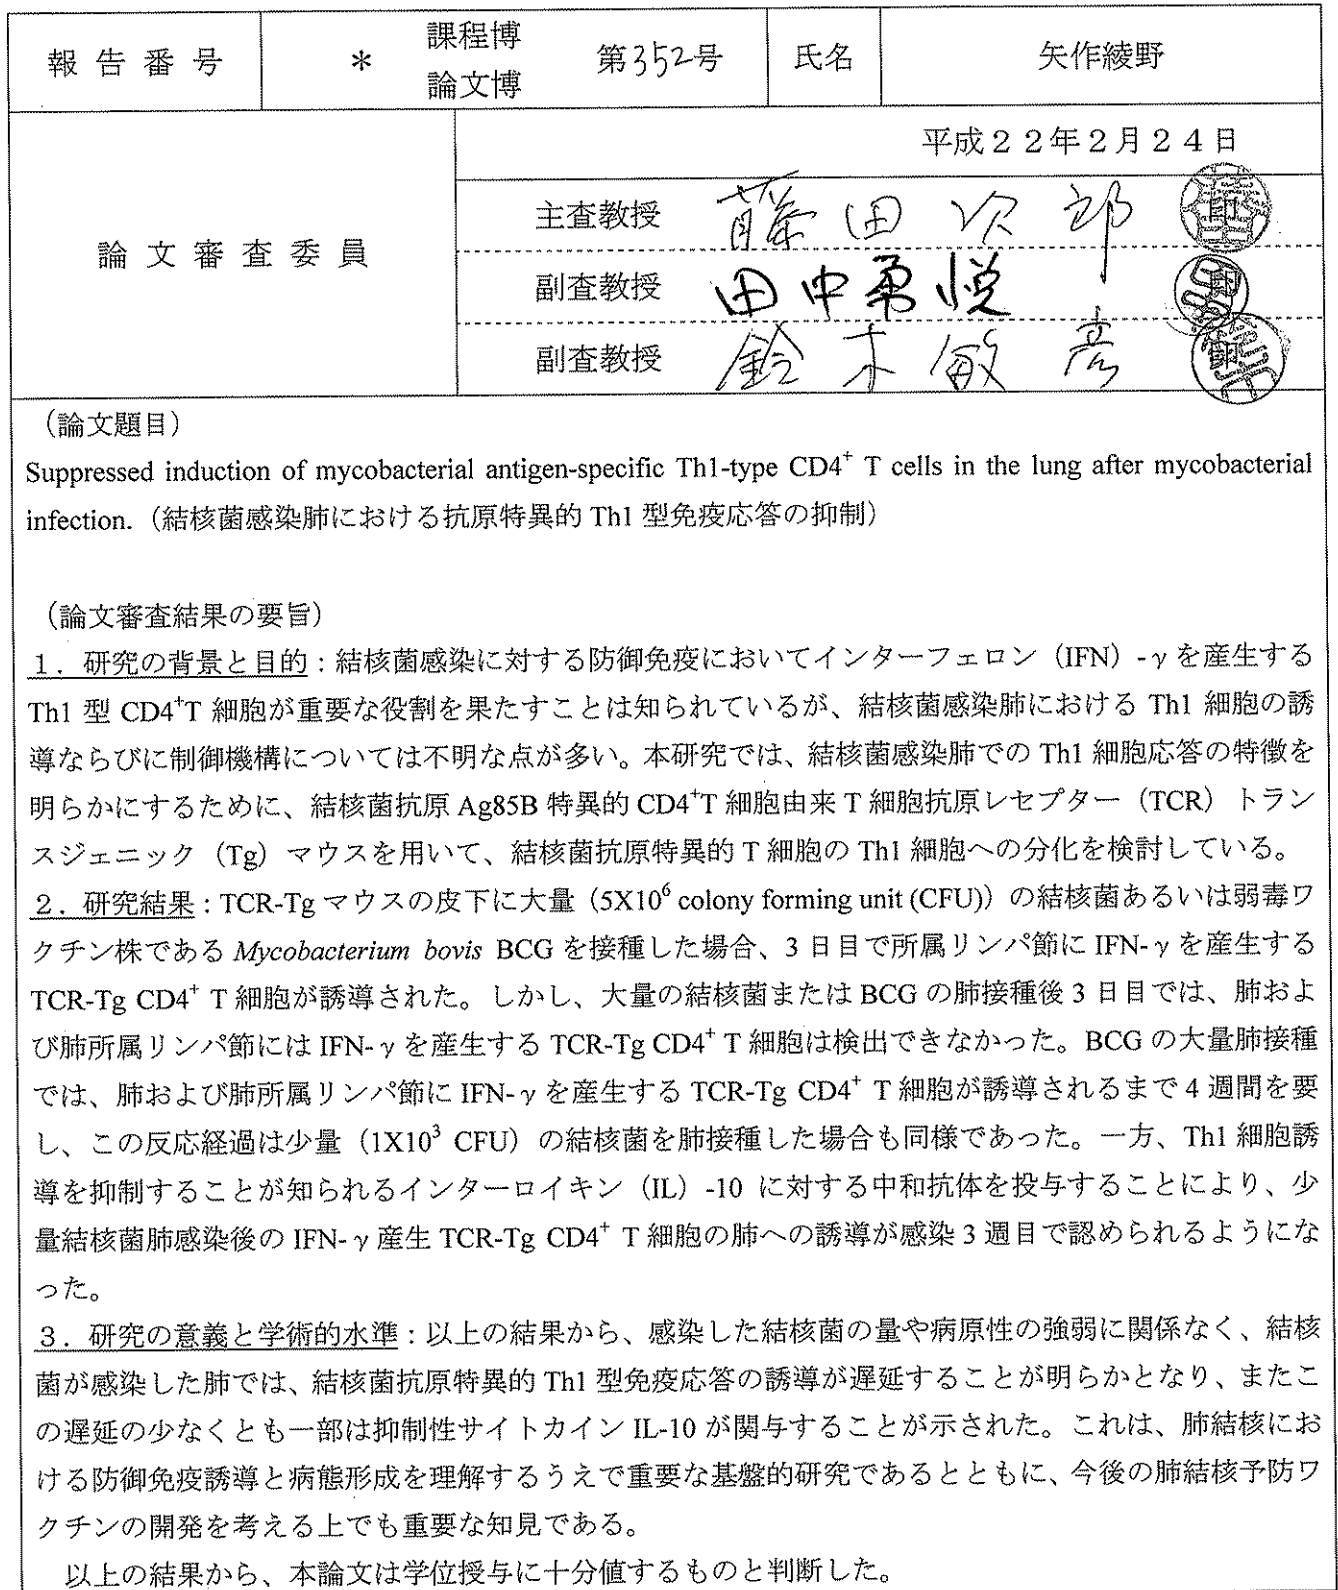 報告番号 * 課程博 論文博 第352号 氏名 矢作綾野
平成22年2月24日
論文審査委員
主査教授 藤田次郎 印
副査教授 田中勇悦 印
副査教授 鈴木敏彦 印
（論文題目）
Suppressed induction of mycobacterial antigen-specific Th1-type CD4⁺ T cells in the lung after mycobacterial
infection.（結核菌感染肺における抗原特異的 Th1 型免疫応答の抑制）
（論文審査結果の要旨）
１．研究の背景と目的：結核菌感染に対する防御免疫においてインターフェロン（IFN）-γを産生する
Th1 型 CD4⁺T 細胞が重要な役割を果たすことは知られているが、結核菌感染肺における Th1 細胞の誘
導ならびに制御機構については不明な点が多い。本研究では、結核菌感染肺での Th1 細胞応答の特徴を
明らかにするために、結核菌抗原 Ag85B 特異的 CD4⁺T 細胞由来 T 細胞抗原レセプター（TCR）トラン
スジェニック（Tg）マウスを用いて、結核菌抗原特異的 T 細胞の Th1 細胞への分化を検討している。
２．研究結果：TCR-Tg マウスの皮下に大量（5X10⁶ colony forming unit (CFU)）の結核菌あるいは弱毒ワ
クチン株である Mycobacterium bovis BCG を接種した場合、3 日目で所属リンパ節に IFN-γを産生する
TCR-Tg CD4⁺ T 細胞が誘導された。しかし、大量の結核菌または BCG の肺接種後 3 日目では、肺およ
び肺所属リンパ節には IFN-γを産生する TCR-Tg CD4⁺ T 細胞は検出できなかった。BCG の大量肺接種
では、肺および肺所属リンパ節に IFN-γを産生する TCR-Tg CD4⁺ T 細胞が誘導されるまで 4 週間を要
し、この反応経過は少量（1X10³ CFU）の結核菌を肺接種した場合も同様であった。一方、Th1 細胞誘
導を抑制することが知られるインターロイキン（IL）-10 に対する中和抗体を投与することにより、少
量結核菌肺感染後の IFN-γ産生 TCR-Tg CD4⁺ T 細胞の肺への誘導が感染 3 週目で認められるようにな
った。
３．研究の意義と学術的水準：以上の結果から、感染した結核菌の量や病原性の強弱に関係なく、結核
菌が感染した肺では、結核菌抗原特異的 Th1 型免疫応答の誘導が遅延することが明らかとなり、またこ
の遅延の少なくとも一部は抑制性サイトカイン IL-10 が関与することが示された。これは、肺結核にお
ける防御免疫誘導と病態形成を理解するうえで重要な基盤的研究であるとともに、今後の肺結核予防ワ
クチンの開発を考える上でも重要な知見である。
以上の結果から、本論文は学位授与に十分値するものと判断した。